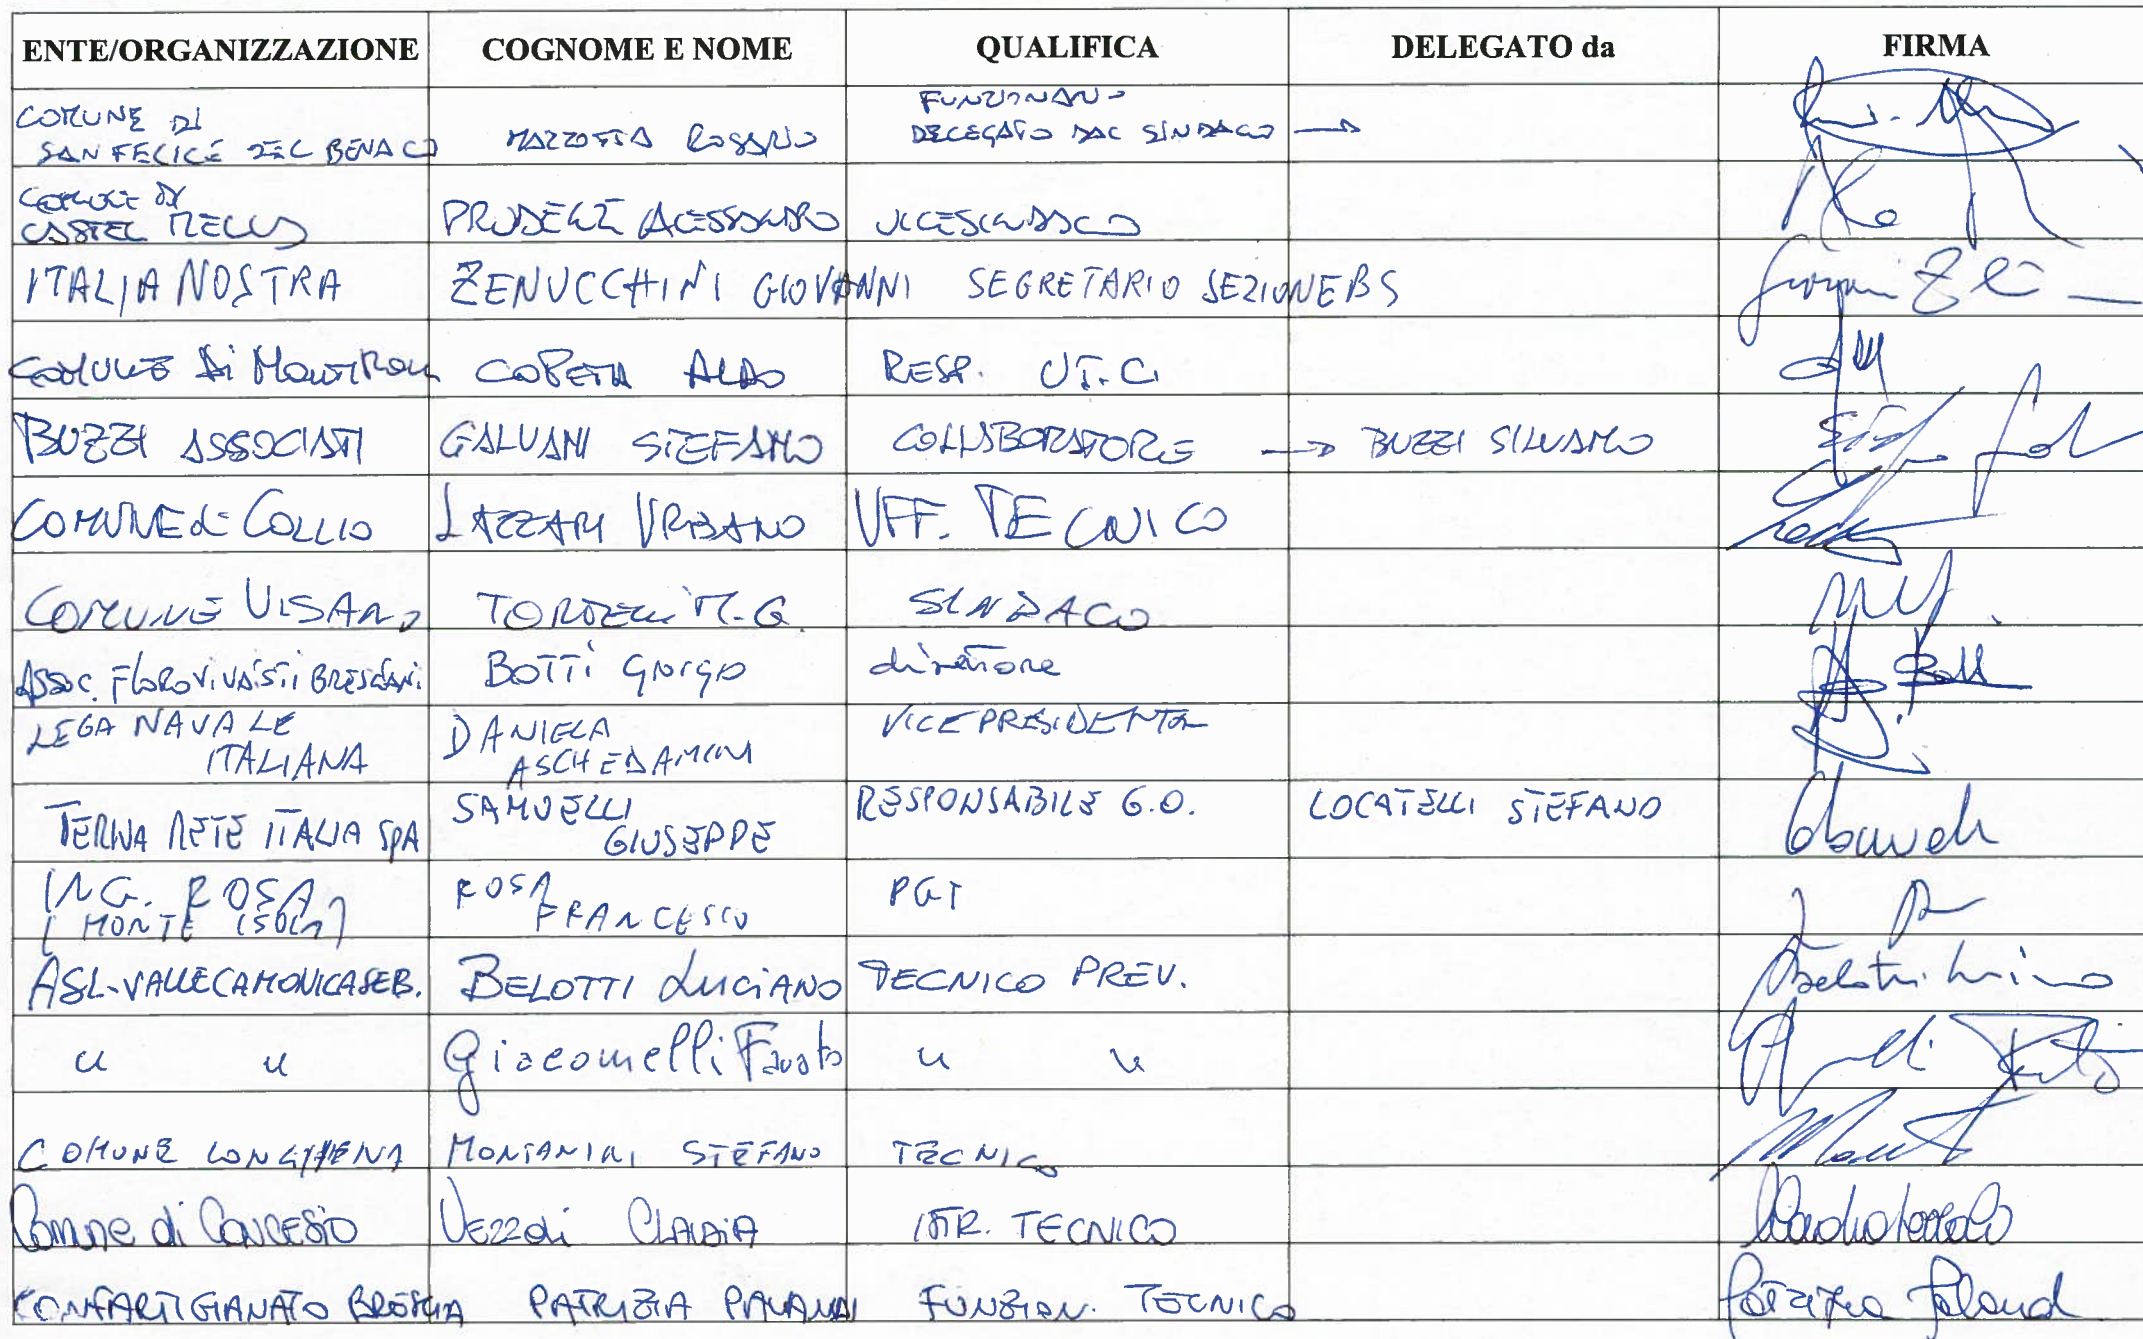 ENTE/ORGANIZZAZIONE COGNOME E NOME QUALIFICA DELEGATO da FIRMA
COMUNE DI
SAN FELICE DEL BENACO MAZZOTTA ROSARIO FUNZIONARIO
DELEGATO DAL SINDACO →
COMUNE DI
CASTEL MELLA ALESSANDRO VICESINDACO
ITALIA NOSTRA ZENUCCHINI GIOVANNI SEGRETARIO SEZIONE BS
COMUNE DI ALDO RESP. U.T.C.
BUZZI ASSOCIATI GALVANI STEFANO COLLABORATORE → BUZZI SILVANO
COMUNE di COLLIO LAZZARI URBANO UFF. TECNICO
COMUNE VISANO M.G. SINDACO
ASSOC. FLOROVIVAISTI BRESCIANI BOTTI Giorgio direttore
LEGA NAVALE
ITALIANA DANIELA
ASCHEDAMINI VICEPRESIDENTE
TERNA RETE ITALIA SPA SAMUELLI
GIUSEPPE RESPONSABILE G.O. LOCATELLI STEFANO
ING. ROSA
(MONTE ISOLA) ROSA
FRANCESCO PGT
ASL-VALLECAMONICASEB. BELOTTI LUCIANO TECNICO PREV. Belotti Luciano
" " Giacomelli Fausto " "
COMUNE LONGHENA MONTANINI STEFANO TECNICO
Comune di CONCESIO VEZZOLI CLAUDIA ISTR. TECNICO
CONFARTIGIANATO BRESCIA PATRIZIA FUNZION. TECNICO Patrizia